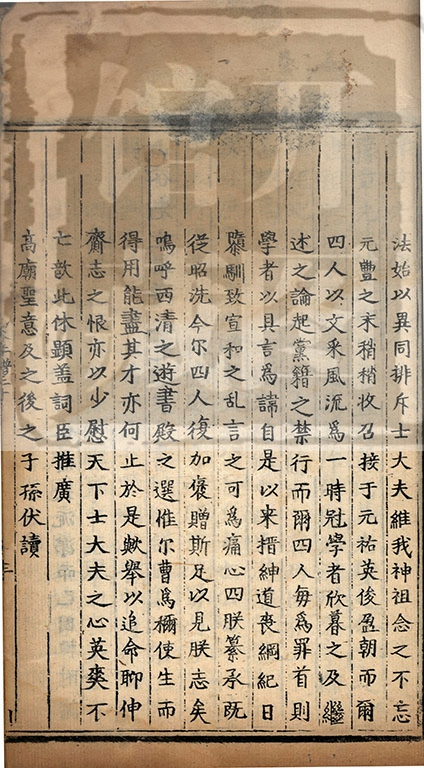 法始以異同排斥士大夫維我神祖念之不忘
元豐之末稍稍收召接于元祐英俊盈朝而爾
四人以文采風流爲一時冠學者欣慕之及繼
述之論起黨籍之禁行而爾四人每爲罪首則
學者以具言爲諱自是以来搢紳道喪綱紀日
隳馴致宣和之乱言之可爲痛心四朕纂承既
従昭洗今尓四人復加褒贈斯足以見朕志矣
嗚呼西清之遊書殿之選惟尓曹爲稱使生而
得用能盡其才亦何止於是歟舉以追命聊伸
齎志之恨亦以少慰天下士大夫之心英爽不
亡歆此休顯盖詞臣推廣
高廟聖意及之後之子孫伏讀